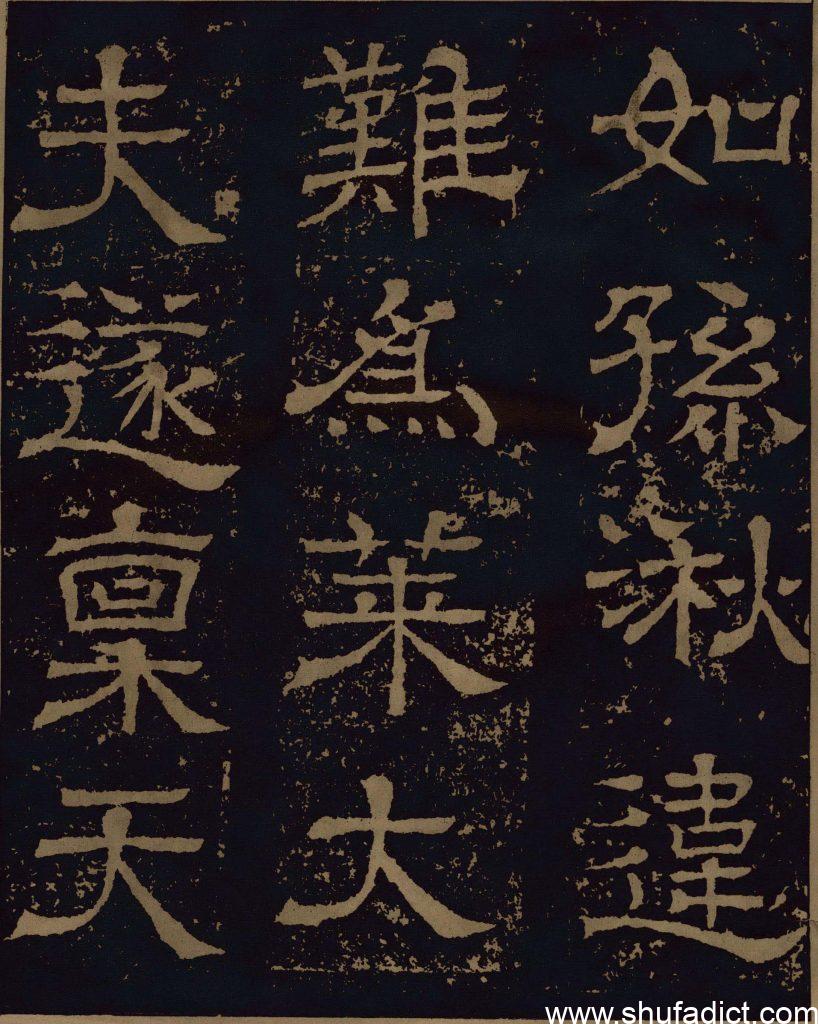 如孫湫違
難為萊大
夫遂稟天
www.shufadict.com